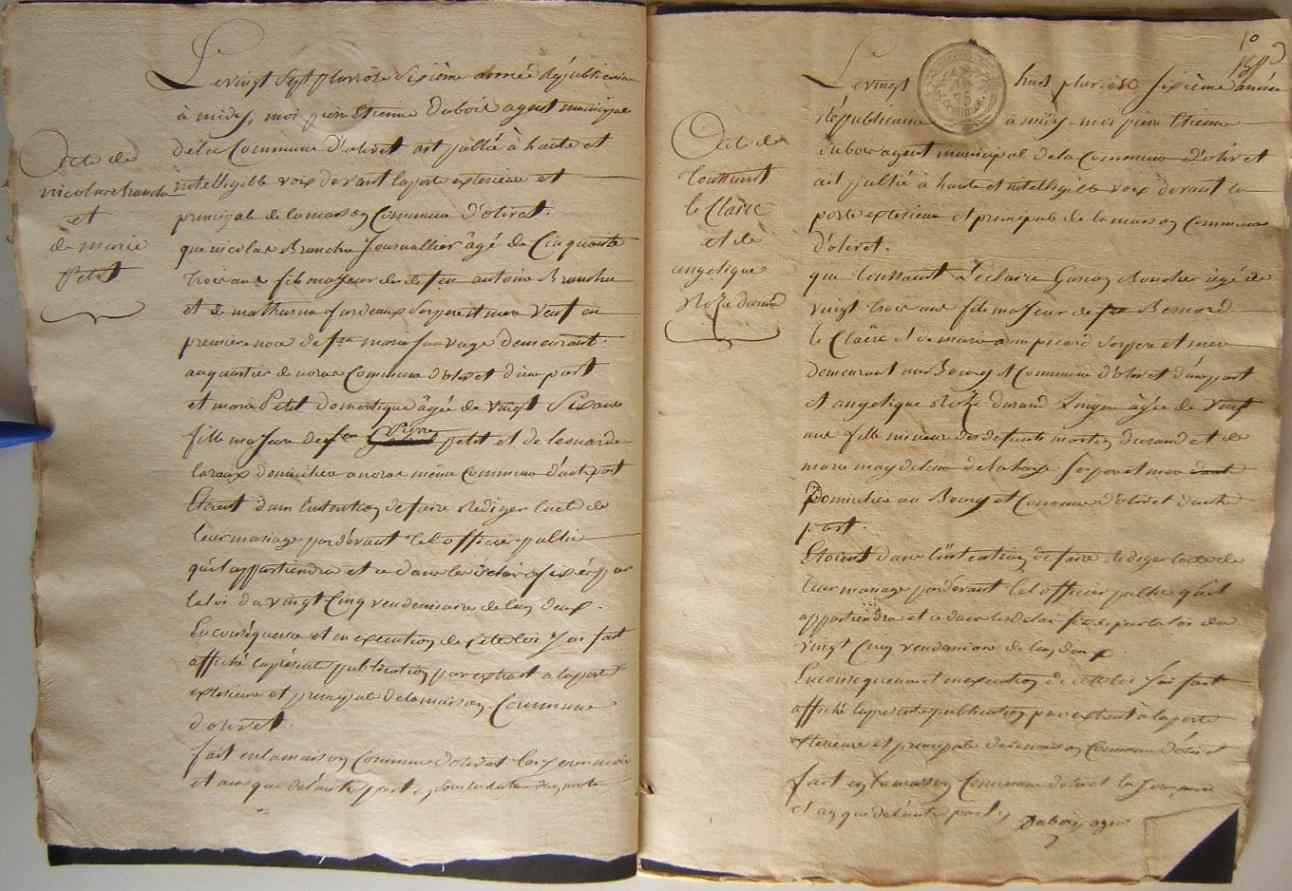 Le vingt Sept pluviôse Sixième année Républicaine
à midy, moi pierre Etienne Dubois agent municipal
de la Commune d'olivet ait publié à haute et
intelligible voix devant la porte exterieure et
principal de la maison Commune d'olivet.
que nicolas Branchu Journallier âgé de Cinquante
trois ans fils majeur de feu antoine Branchu
et de mathurine Ses pere et mere Veuf en
premiere noce de fue marie Sauvage demeurant
au quartier de Commune d'olivet d'une part
et marie Petit domestique âgée de vingt Six ans
fille majeure de feu Pierre petit et de leonarde
domiciliée même Commune d'autre part
Etoient dans L'intention de faire rediger l'acte de
Leur mariage pardevant tel officier public
qu'il appartiendra et ce dans les délais fixés par
la loi du vingt Cinq vendemiaire de l'an deux.
En conséquence et en execution de cete loi J'ai fait
affiché la présente publication par extrait a la porte
exterieure et principal de la maison Commune
d'olivet.
fait en la maison Commune d'olivet les jour mois
et an que de l'autre part
acte de
nicolas branchu
et
de marie
Petit
1o
Le vingt huit pluviose Sixième année
Républicaine à midy moi pierre Etienne
dubois agent municipal de la Commune d'olivet
ait publié à haute et intelligible voix devant la
porte exterieure et principale de la maison Commune
d'olivet.
que toussaint Leclaire Garçon Boucher âgé de
vingt trois ans fils majeur de feu Bernard
le Claire et de marie anne picard Ses pere et mere
demeurant au Bourg et Commune d'olivet d'une part
et angelique Rose durand Lingere âgée de vingt
ans fille mineure des defunts martin durand et de
marie magdeleine delahaye Ses pere et mere
Domiciliée au Bourg et Commune d'olivet d'autre
part.
Etoient dans L'intention de faire rediger l'acte de
leur mariage pardevant tel officier public qu'il
appartiendra et ce dans les delais fixés par la loi du
vingt Cinq vendemiaire de l'an deux.
En consequence et en execution de cete loi J'ai fait
affiché la presente publication par extrait à la porte
exterieure et principale de la maison Commune d'olivet
fait en la maison Commune d'olivet les Jour mois
et an que de l'autre part Dubois agent
Acte de
toussaint
le Claire
et de
angelique
Rose durand